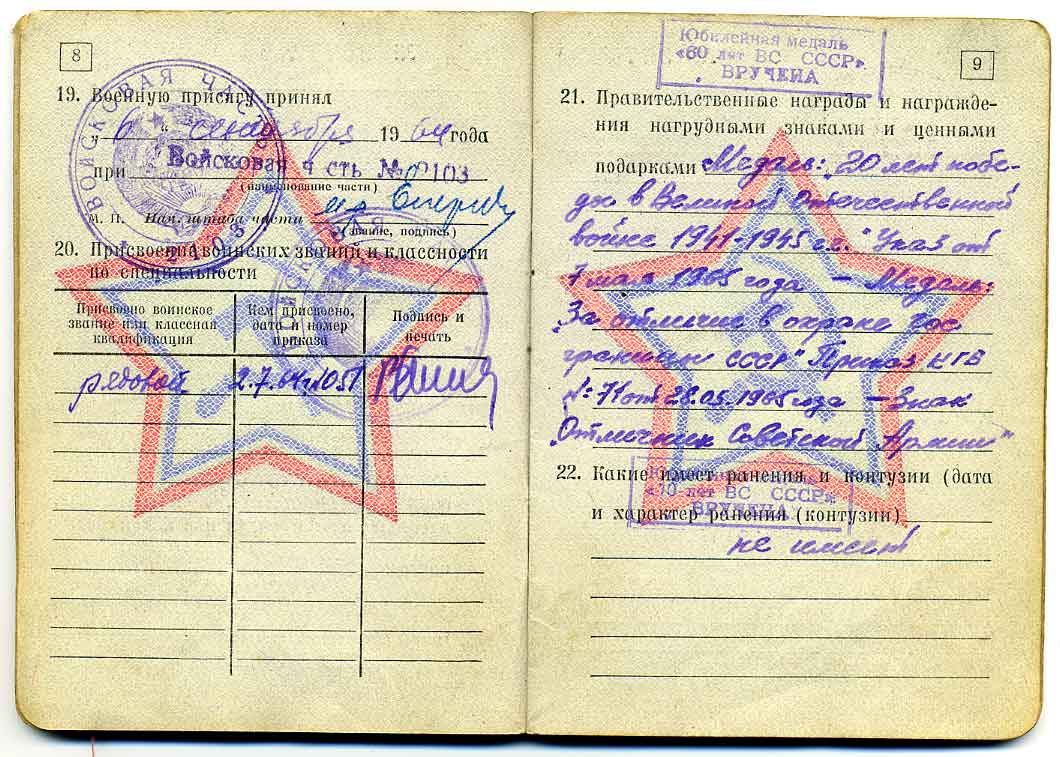 8
19. Военную присягу принял
„ 6 “ сентября 1964 года
при Войсковая ч сть № 2103
(наименование части)
М. П. Нач. штаба части
(звание, подпись)
ВОЙСКОВАЯ ЧАСТЬ 2103
20. Присвоение воинских званий и классности
по специальности
Присвоено воинское звание или классная квалификация
Кем присвоено, дата и номер приказа
Подпись и печать
рядовой 2.7.64г. 1051
Юбилейная медаль
«60 лет ВС СССР»
ВРУЧЕНА
9
21. Правительственные награды и награжде-
ния нагрудными знаками и ценными
подарками Медаль: „20 лет побе-
ды в Великой Отечественной
войне 1941-1945 г.г." Указ от
7 мая 1965 года – Медаль:
„За отличие в охране гос
границы СССР" Приказ КГБ
№ 71 от 28.05.1965 года – Знак
„Отличник Советской Армии"
22. Какие имеет ранения и контузии (дата
«70 лет ВС СССР»
ВРУЧЕНА
и характер ранения (контузии)
не имеет